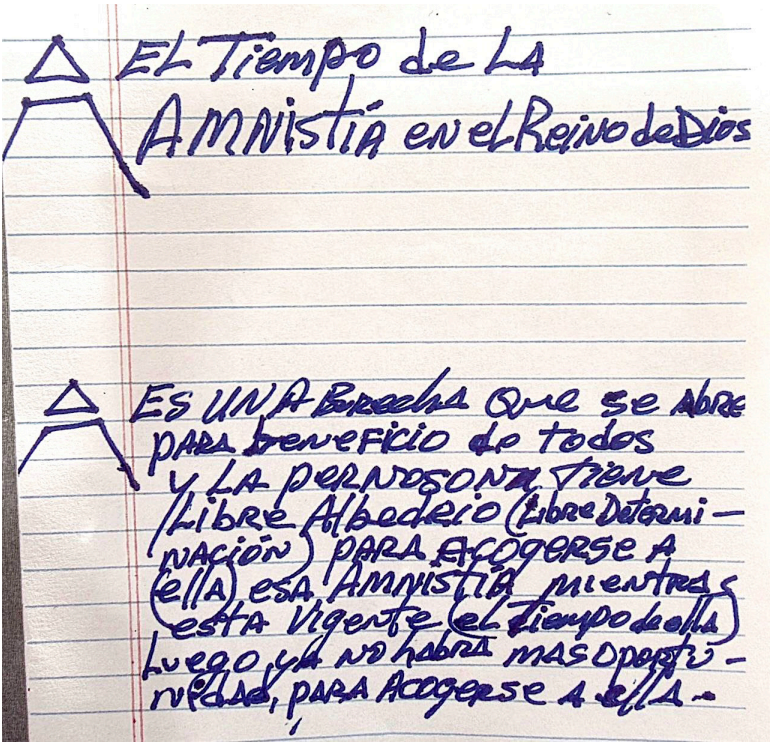 EL Tiempo de LA
AMNistíA en el Reino de Dios
ES UNA Brecha que se Abre
PARA beneficio de todos
y LA tiene
Libre Albedrio (Libre Determi-
NACIÓN) PARA ACOGERSE A
(ellA) esA AMNistíA mientras
estA Vigente (el Tiempo de ella)
Luego ya no habrA mas oportu-
nidad, PARA Acogerse A ellA.